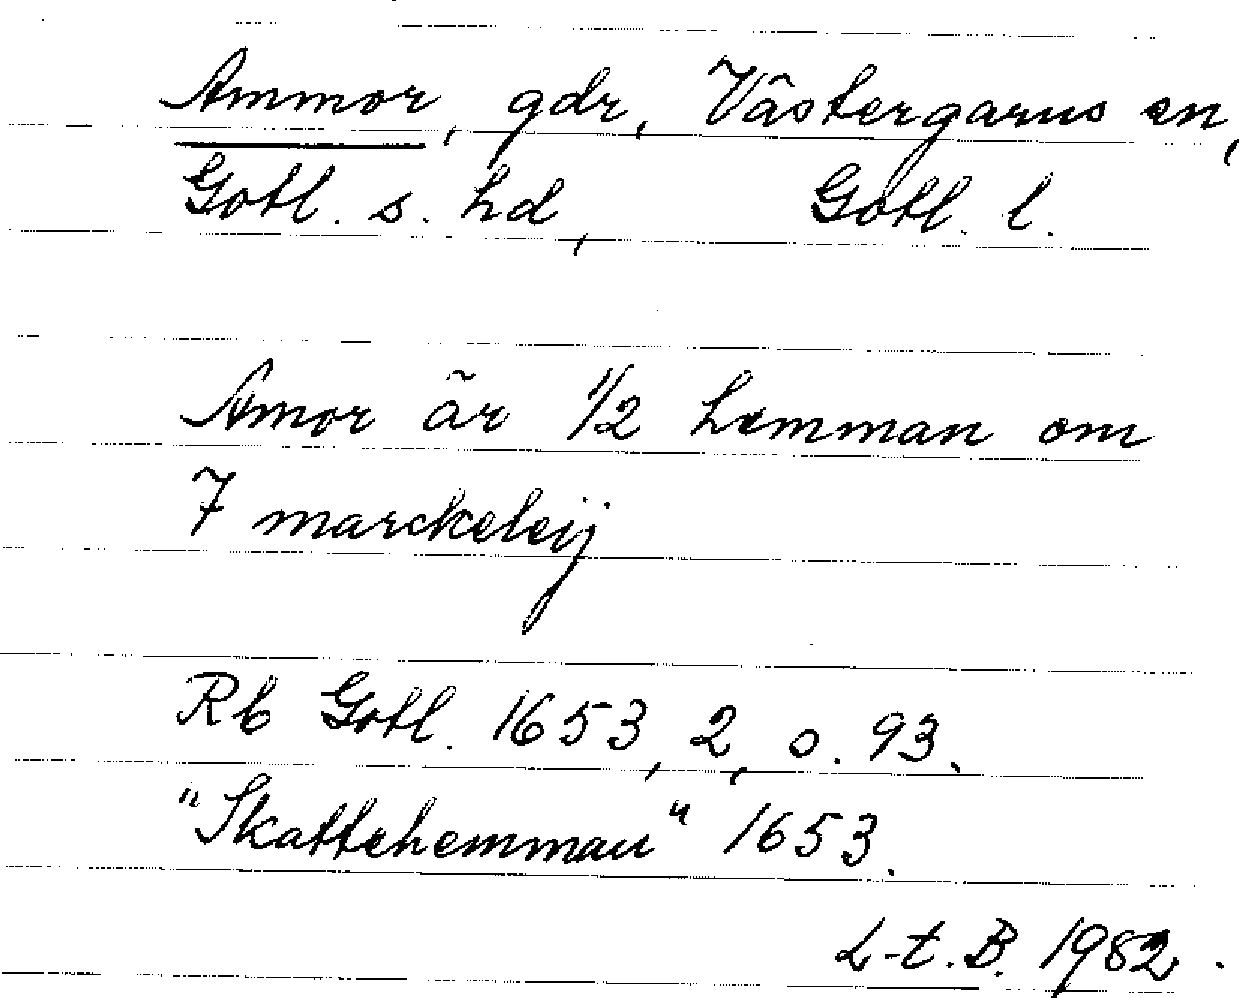 Ammor, gdr, Västergarns sn,
Gotl. s. hd, Gotl. l.
Amor är 1/2 hemman om
7 marckeleij
Rb Gotl. 1653, 2, s. 93.
"Skattehemman" 1653.
L-t. B. 1982.